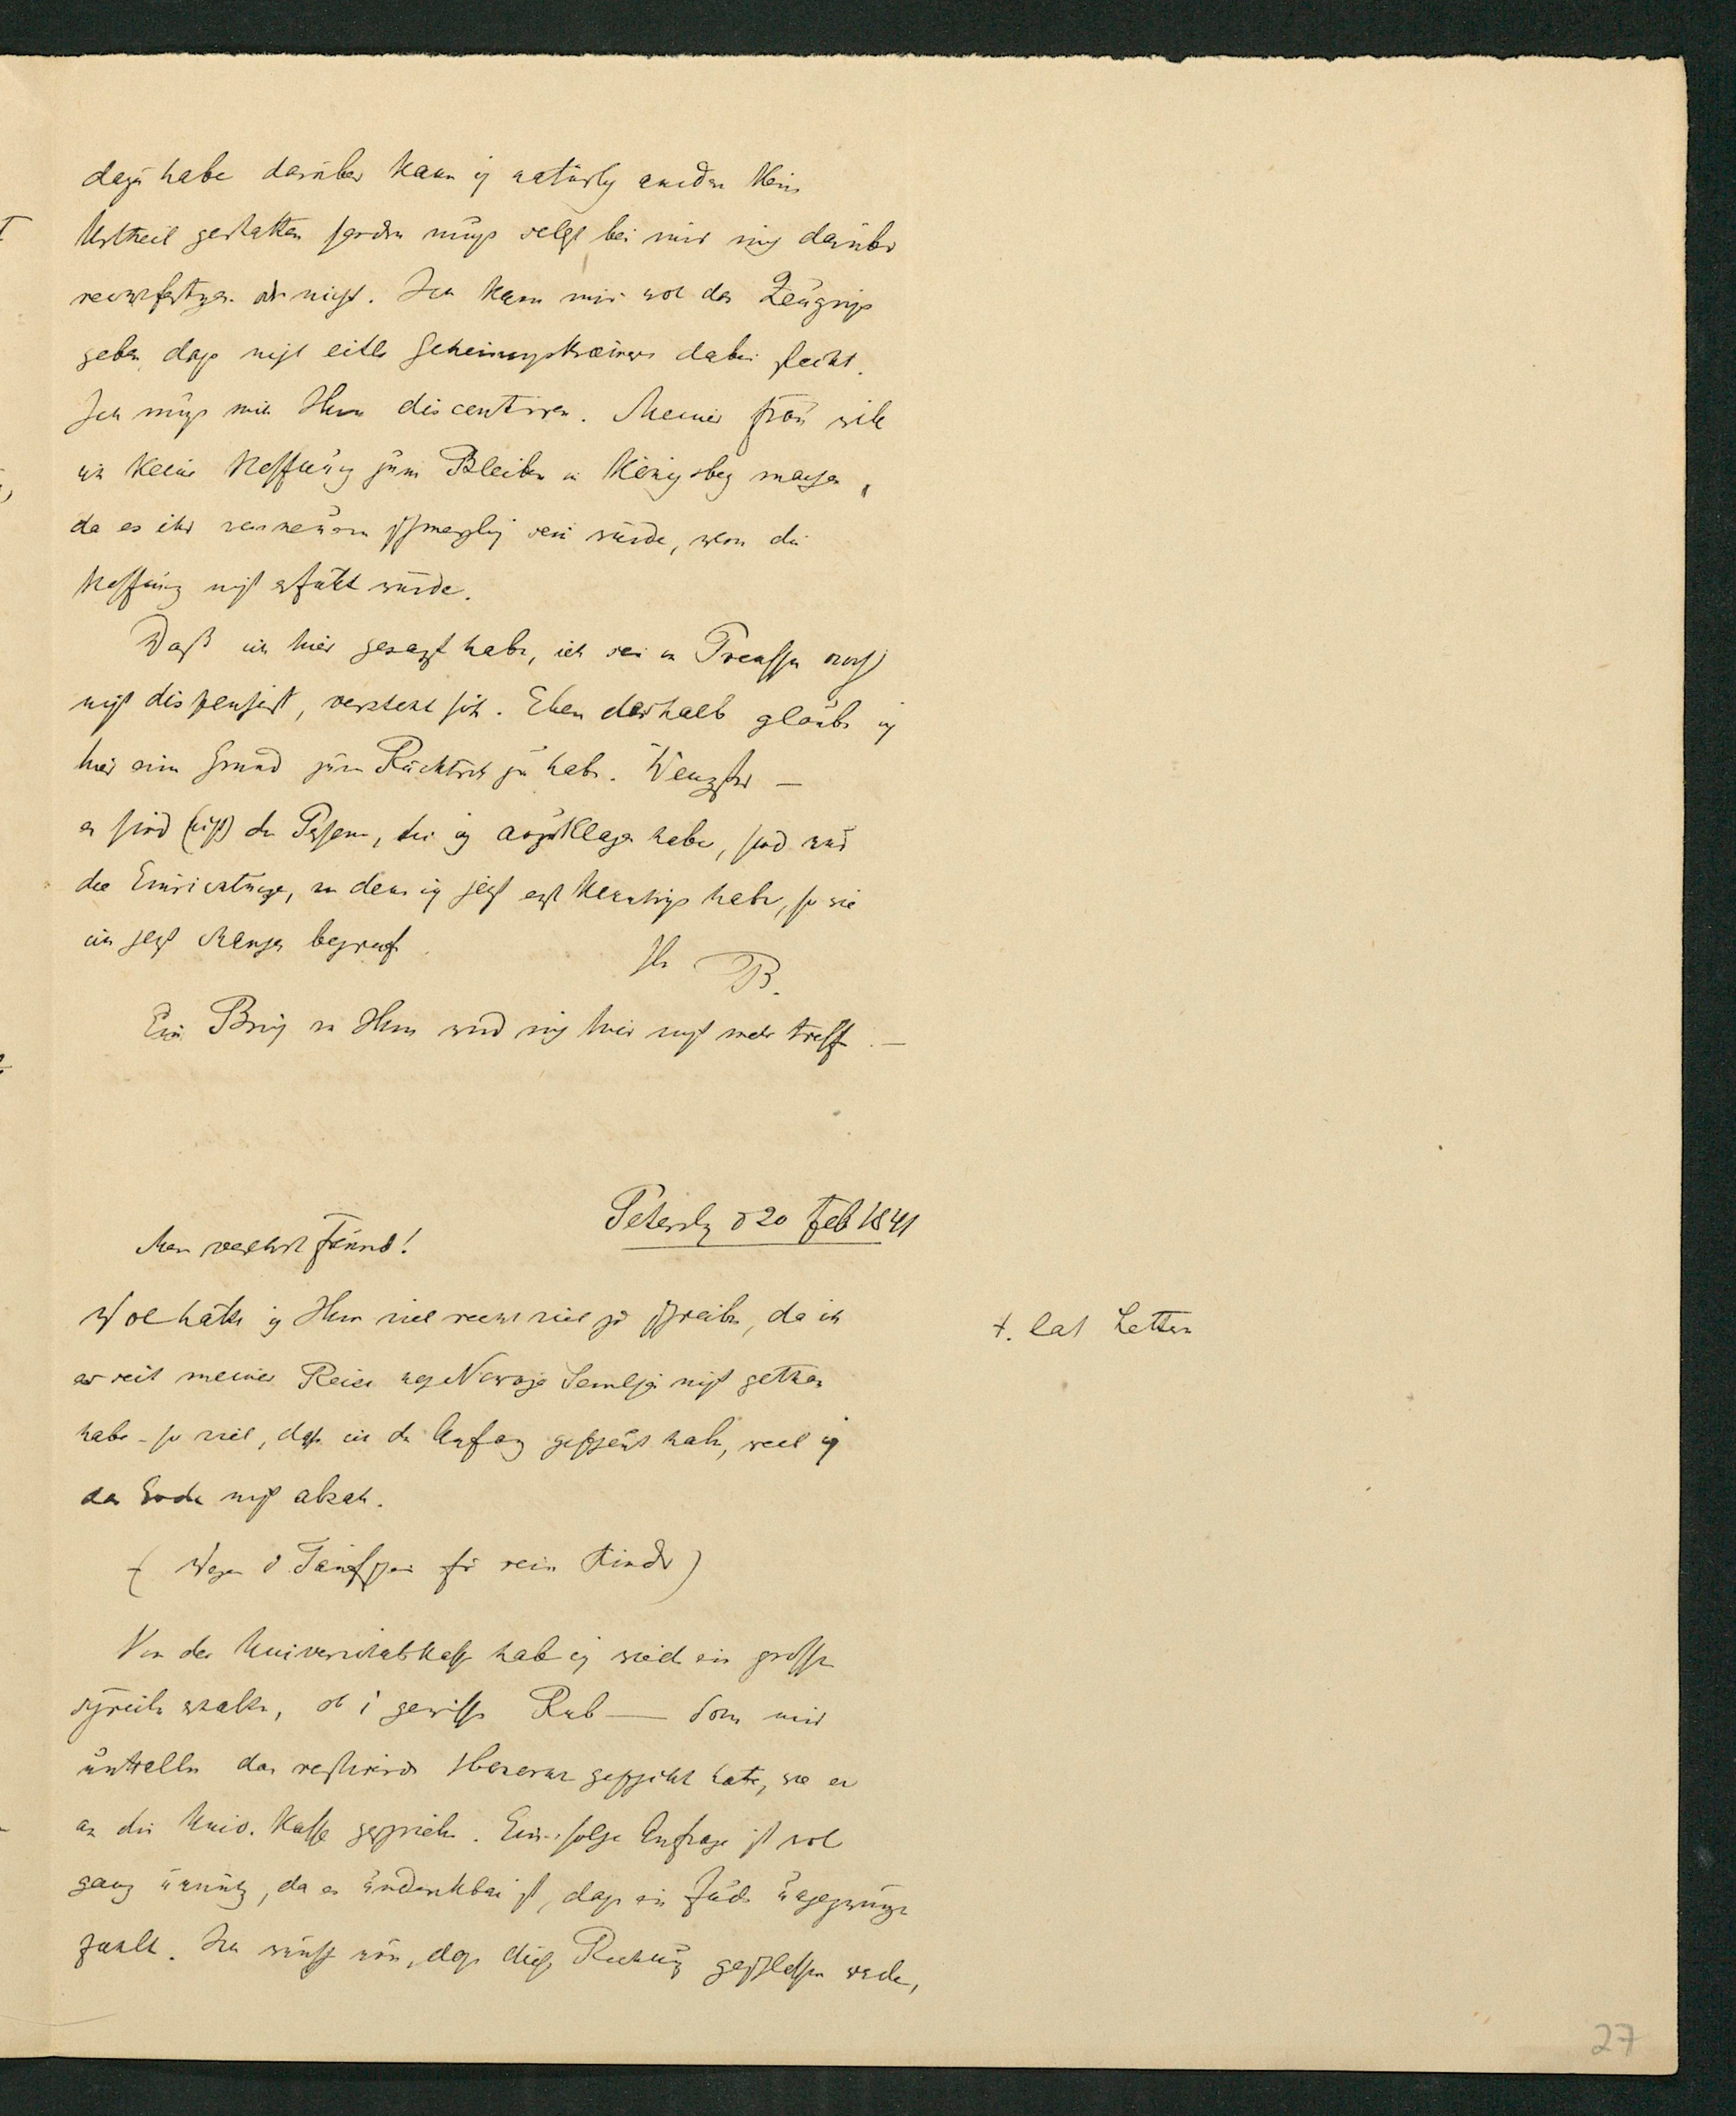 dazu habe darüber kann ich natürlich anderen kein
Urtheil gestatten sondern muss selbst bei mir mich darüber
rechtfertigen oder nicht. Ich kann mir wol das Zeugniss
geben, dass nicht eitle Geheimnisskrämerei dabei steckt.
Ich muss mich Ihnen discentiren. Meiner Frau will
ich keine Hoffnung zum Bleiben in Königsberg machen,
da es ihr schmerzlich sein würde, wenn die
Hoffnung nicht erfüllt würde.
Daß ich hier gesagt habe, ich sei in Preussen noch
nicht dispensirt, versteht sich. Eben deshalb glaube ich
hier einen Grund zum Rücktritt zu haben. Wenigstens —
es sind (nicht) die Personen, die ich anzuklagen habe, sind
die Einrichtungen, von denen ich jetzt erst Kenntniss habe, so wie
ich jetzt Manches begreife.
Ihr B.
Ein Brief von Ihnen wird mich hier nicht mehr treffen. —
Petersbg d 20 Feb 1841
Mein verehrter Freund!
Wol hätte ich Ihnen viel recht viel zu schreiben, da ich
es seit meiner Reise nach Nowaja Semlja nicht gethan
habe – so viel, dass ich den Anfang gescheut habe, weil ich
das Ende nicht absah.
(Wegen d Taufschein für sein Kinder)
Von der Universitätskasse habe ich wieder ein grosses
Schreiben erhalten, ob i gewisser Rub — Dorn mir
das restirende Honorar geschickt hatte, wie er
an die Univ. Kasse geschrieben. Eine solche Anfrage ist wol
ganz unnütz, da es undenkbar ist, dass ein Jude ungezwungen
zahlt. Ich wünsche nun, dass diese Rechnung geschlossen werde,
+. lat Letten
27